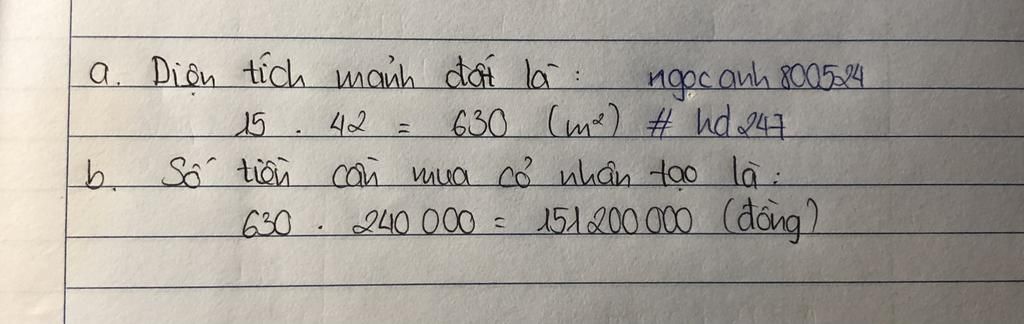 a. Diện tích mảnh đất là : ngocanh800524
15 . 42 = 630 (m²) # hd247
b. Số tiền cần mua cỏ nhân tạo là :
630 . 240 000 = 151 200 000 (đồng)